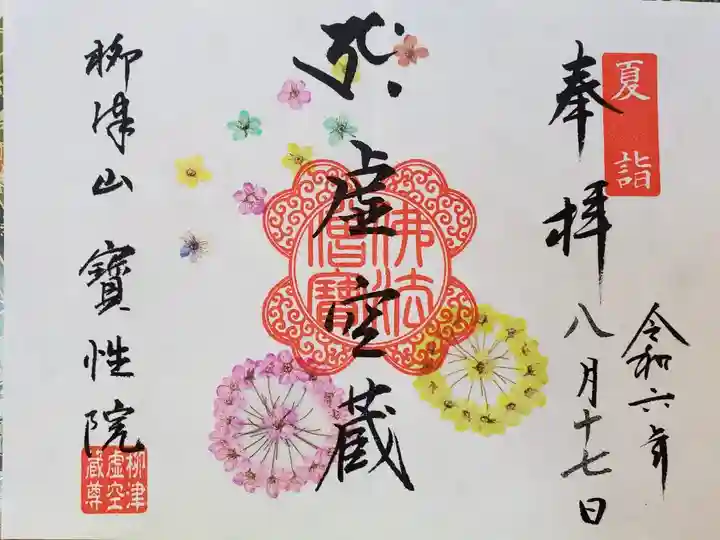 夏詣
奉拝
令和六年
八月十七日
虚空蔵
佛法僧寳
柳津山 寳性院
柳津虚空蔵尊